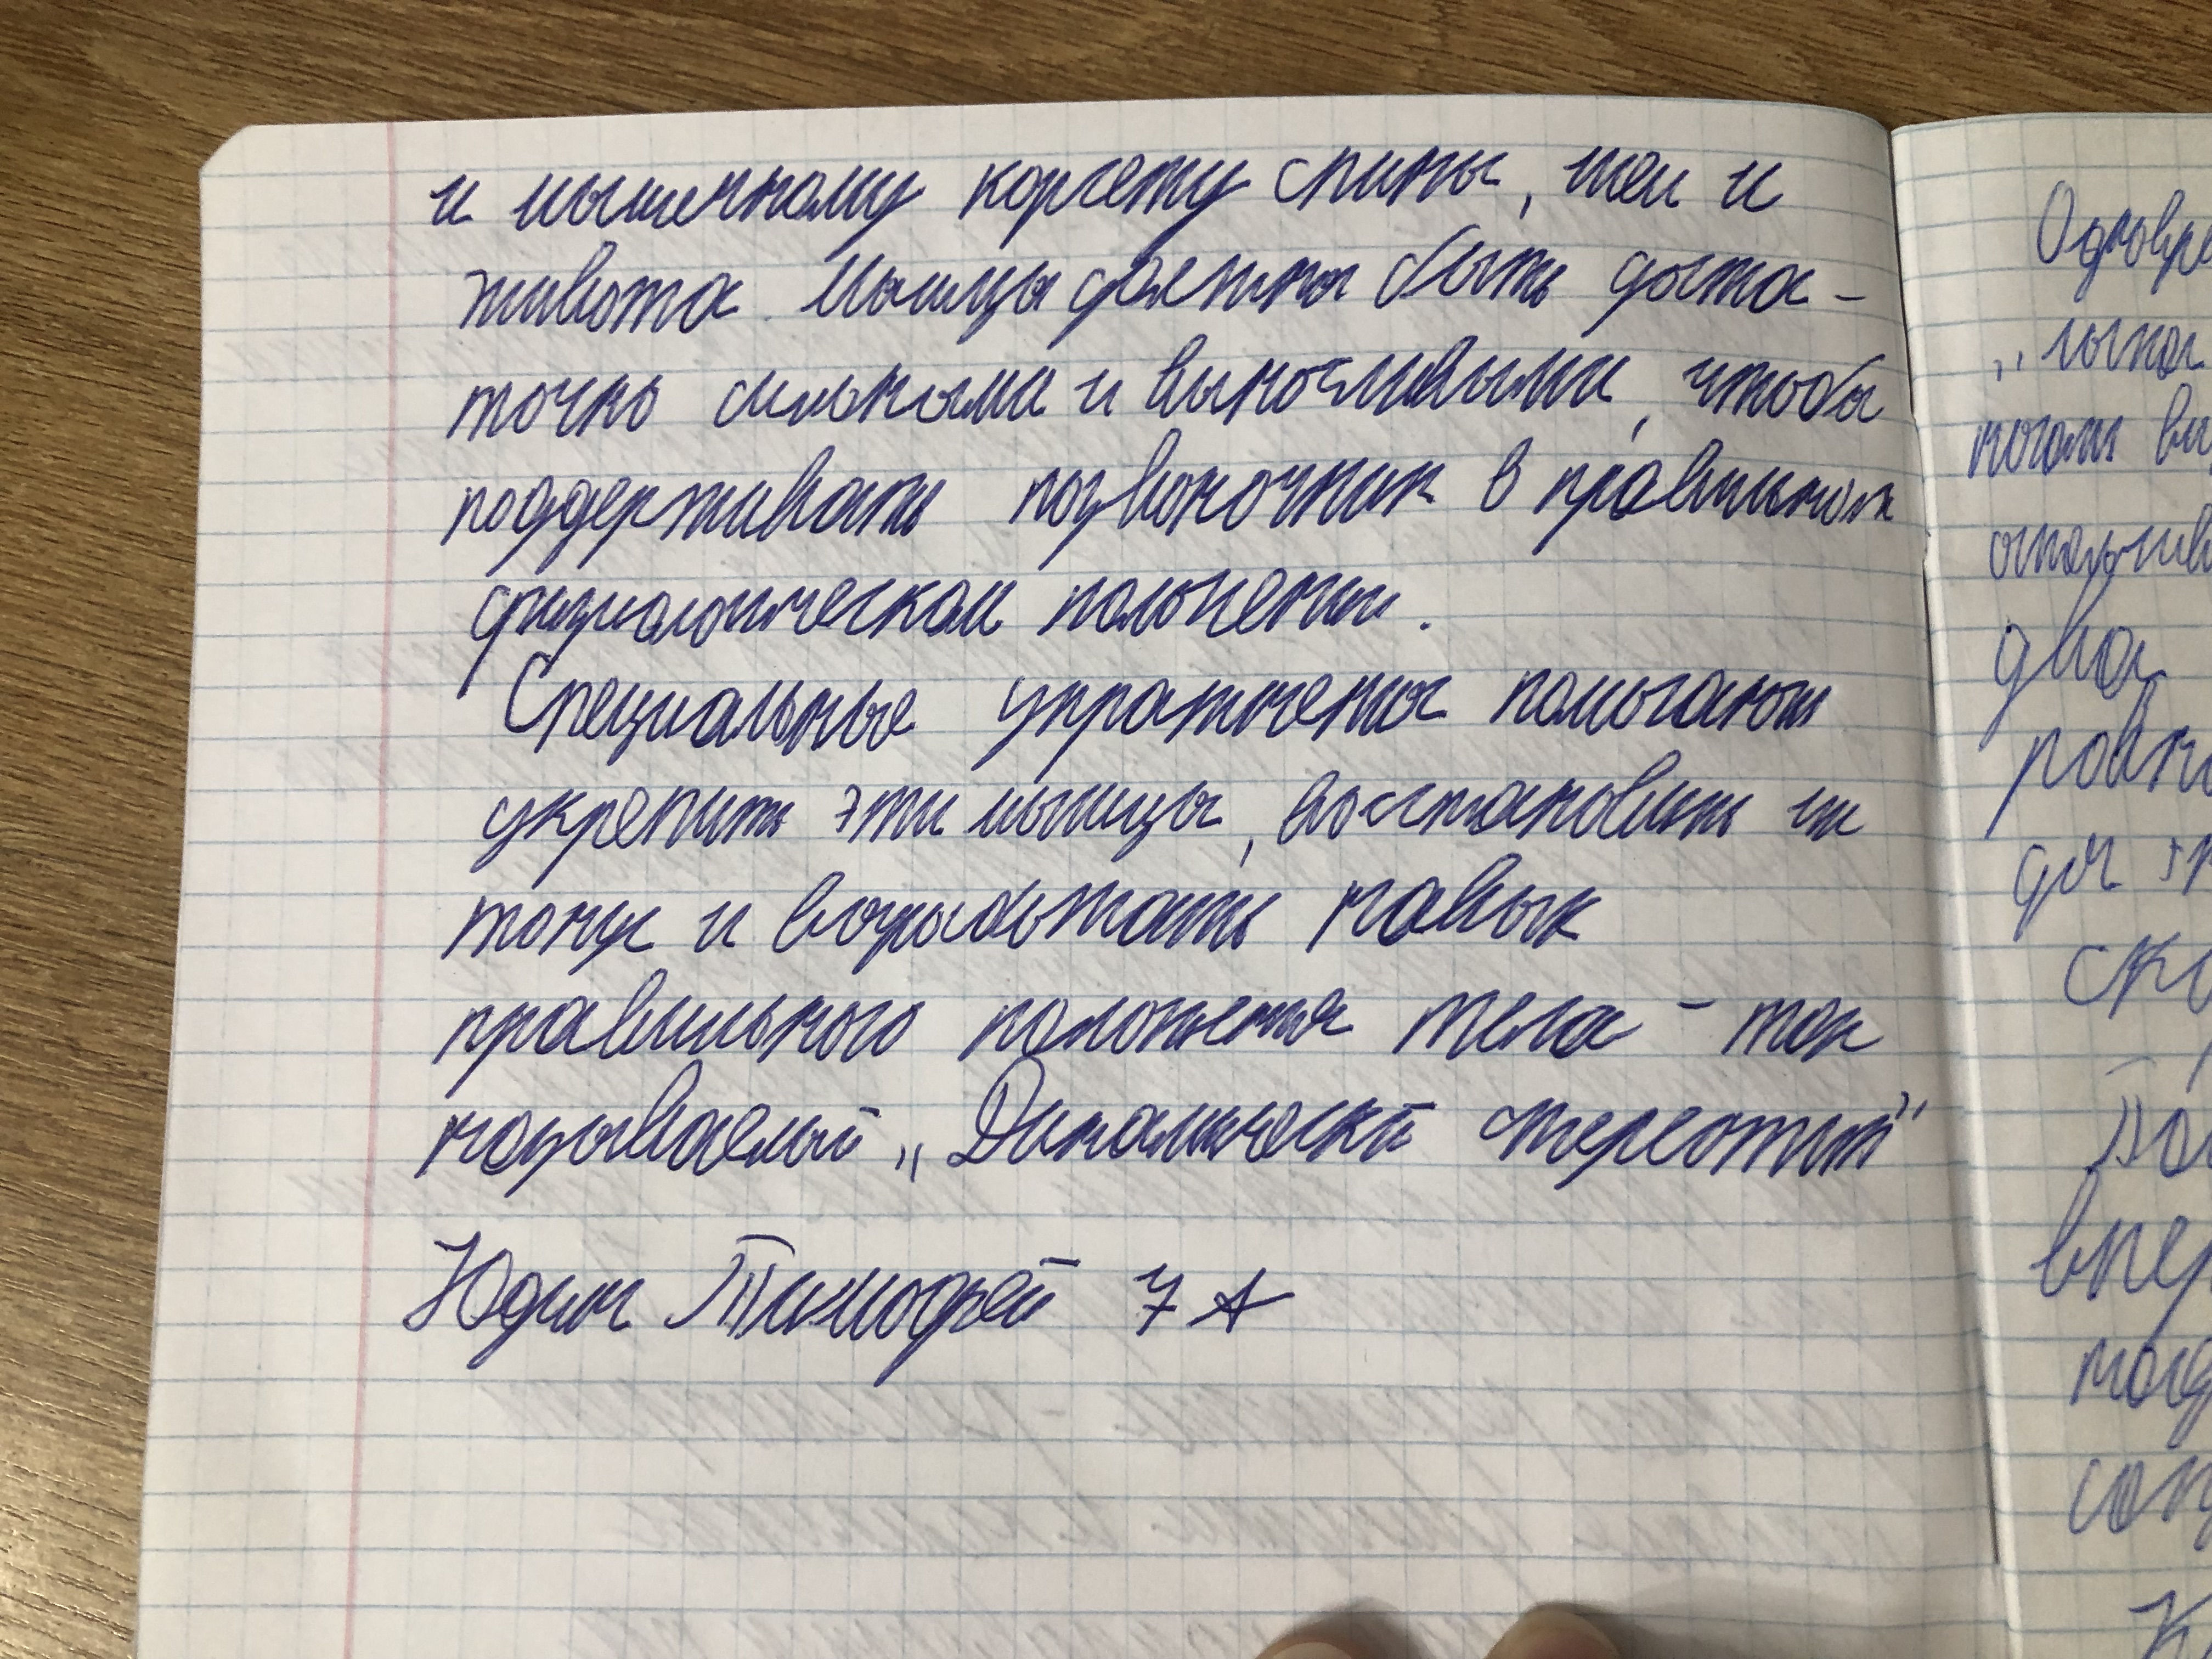 и мышечному корсету спины, шеи и
живота. Мышцы должны быть доста-
точно сильными и выносливыми, чтобы
поддерживать позвоночник в правильном
физиологическом положении.
Специальные упражнения помогают
укрепить эти мышцы, восстановить их
тонус и выработать навык
правильного положения тела - так
называемый „Динамический стереотип"
Юдин Тимофей 7 А
два